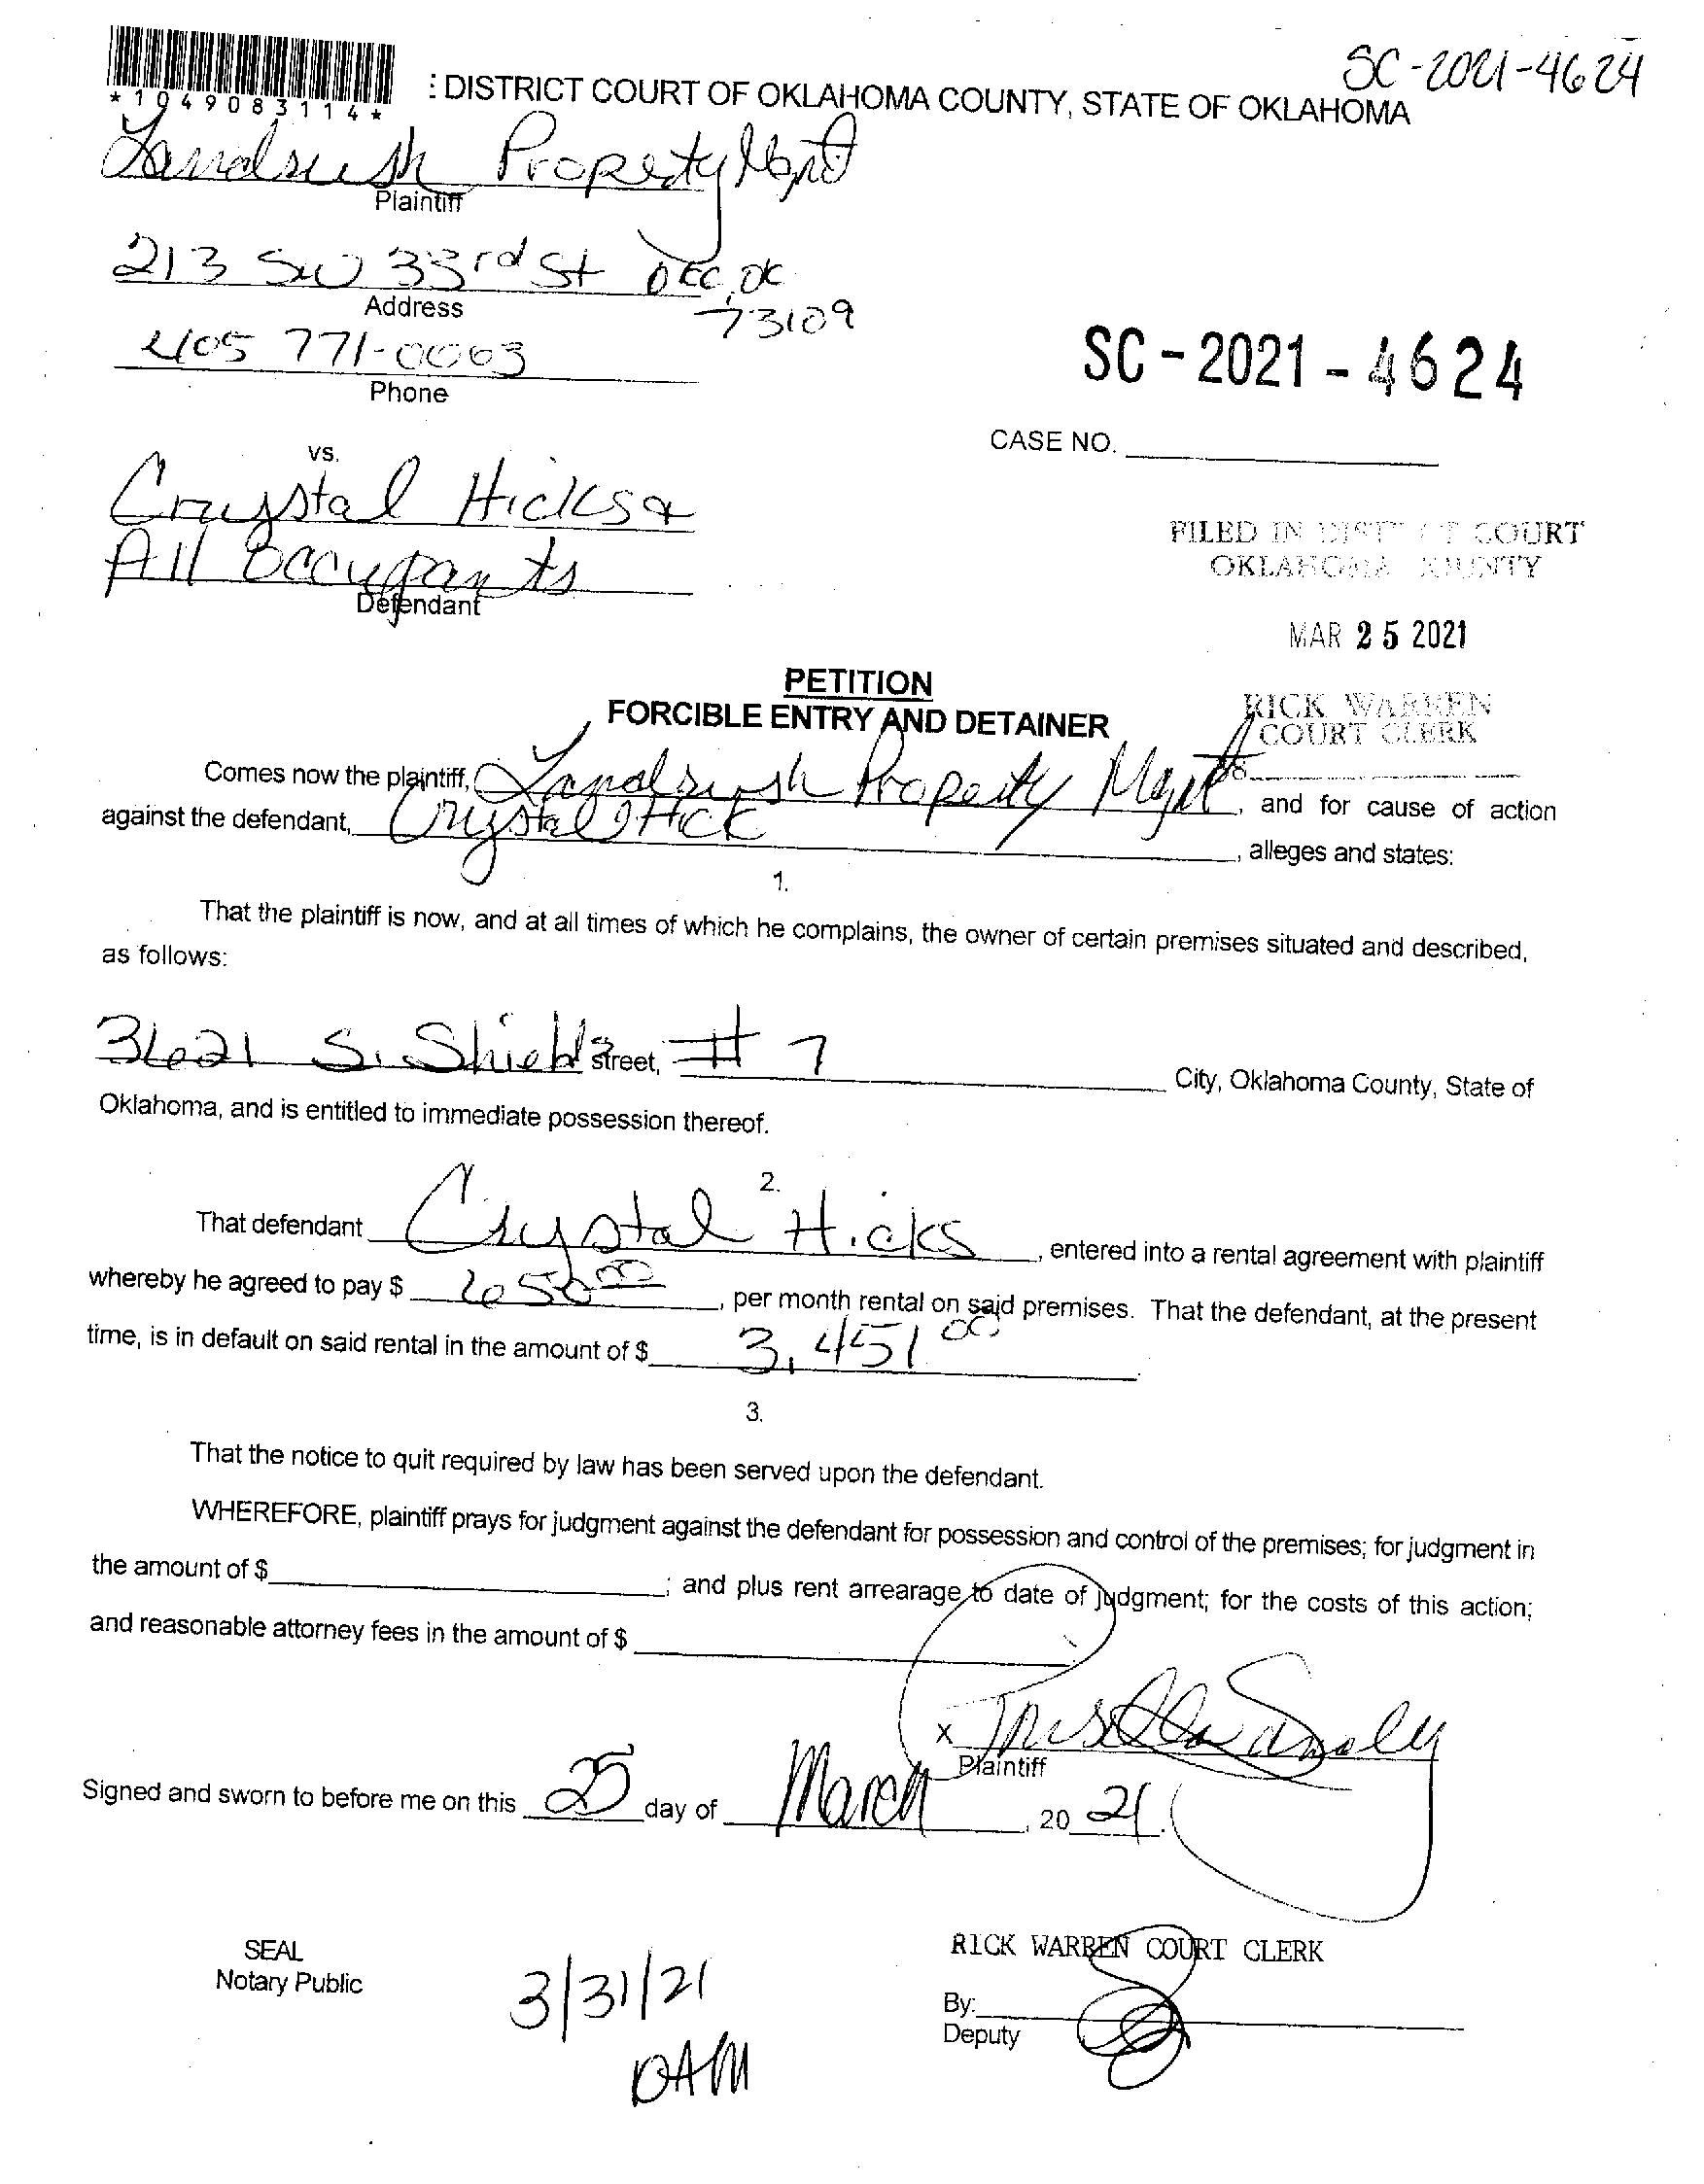 SC-2021-4624
*1049083114*
: DISTRICT COURT OF OKLAHOMA COUNTY, STATE OF OKLAHOMA
Landrush Property Mgmt
Plaintiff
213 SW 33rd St OKC, OK
73109
Address
405 771-0003
Phone
SC-2021-4624
CASE NO.
vs.
Crystal Hicks &
All Occupants
Defendant
FILED IN DISTRICT COURT
OKLAHOMA COUNTY
MAR 25 2021
RICK WARREN
COURT CLERK
PETITION
FORCIBLE ENTRY AND DETAINER
Comes now the plaintiff, Landrush Property Mgmt, and for cause of action
against the defendant, Crystal Hick, alleges and states:
1.
That the plaintiff is now, and at all times of which he complains, the owner of certain premises situated and described,
as follows:
3621 S. Shields street, # 7 City, Oklahoma County, State of
Oklahoma, and is entitled to immediate possession thereof.
2.
That defendant Crystal Hicks, entered into a rental agreement with plaintiff
whereby he agreed to pay $ 650 00, per month rental on said premises. That the defendant, at the present
time, is in default on said rental in the amount of $ 3,451 00
3.
That the notice to quit required by law has been served upon the defendant.
WHEREFORE, plaintiff prays for judgment against the defendant for possession and control of the premises; for judgment in
the amount of $ ; and plus rent arrearage to date of judgment; for the costs of this action;
and reasonable attorney fees in the amount of $
x
Plaintiff
Signed and sworn to before me on this 25 day of March, 20 21.
SEAL
Notary Public
3/31/21
DAM
RICK WARREN COURT CLERK
By:
Deputy